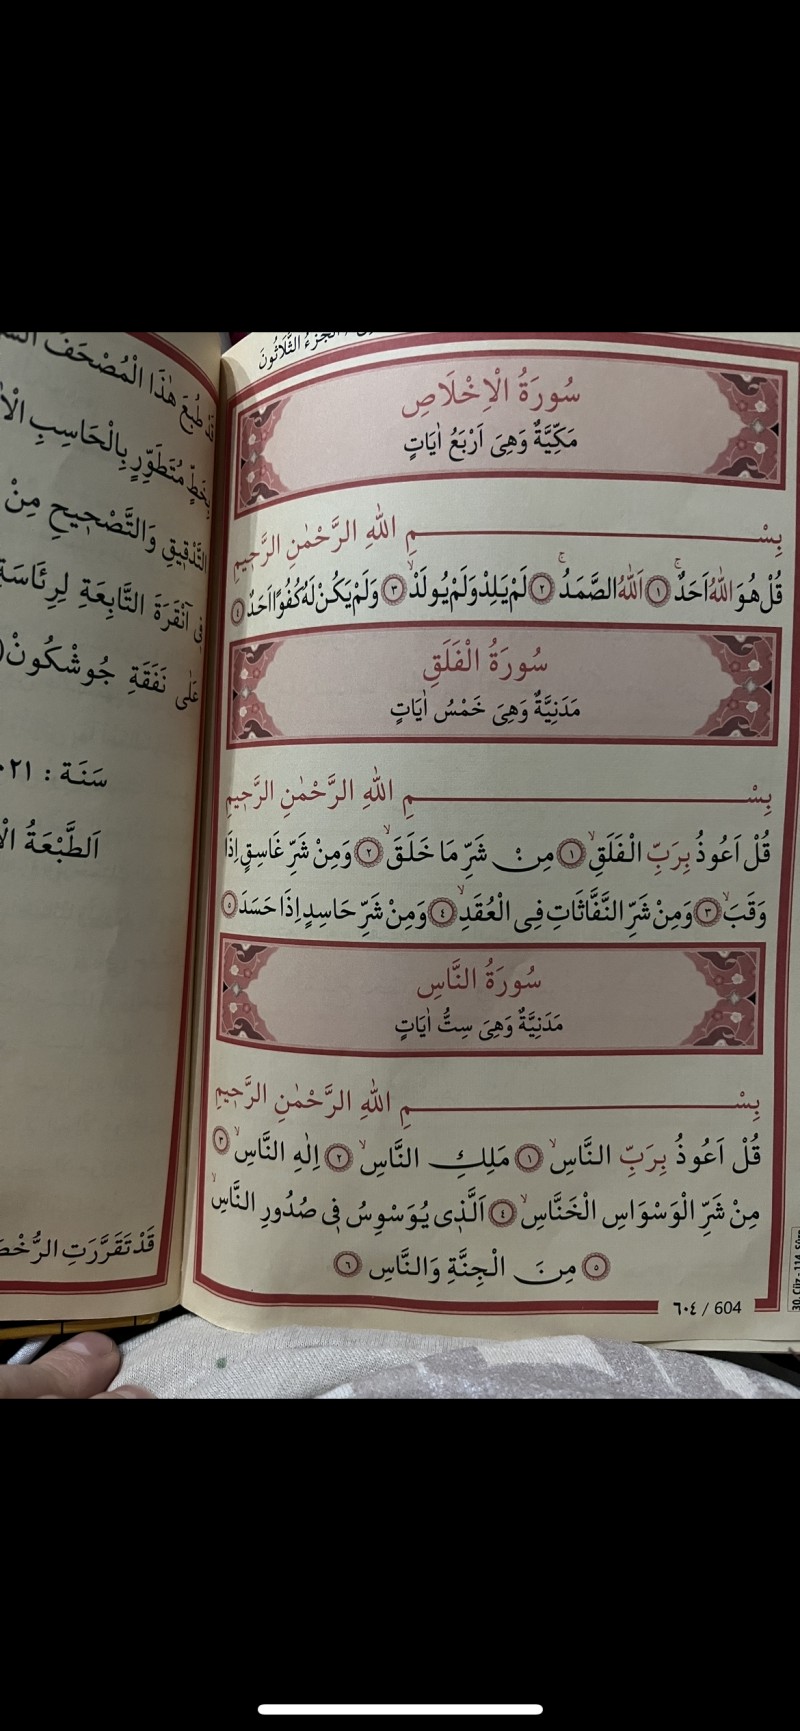 الْجُزْءُ الثَّلَاثُونَ
سُورَةُ الْاِخْلَاصِ
مَكِّيَّةٌ وَهِىَ اَرْبَعُ اٰيَاتٍ
بِسْمِ اللّٰهِ الرَّحْمٰنِ الرَّحٖيمِ
قُلْ هُوَ اللّٰهُ اَحَدٌۚ ﴿١﴾ اَللّٰهُ الصَّمَدُۚ ﴿٢﴾ لَمْ يَلِدْ وَلَمْ يُولَدْۙ ﴿٣﴾ وَلَمْ يَكُنْ لَهُ كُفُوًا اَحَدٌ ﴿٤﴾
سُورَةُ الْفَلَقِ
مَدَنِيَّةٌ وَهِىَ خَمْسُ اٰيَاتٍ
بِسْمِ اللّٰهِ الرَّحْمٰنِ الرَّحٖيمِ
قُلْ اَعُوذُ بِرَبِّ الْفَلَقِۙ ﴿١﴾ مِنْ شَرِّ مَا خَلَقَۙ ﴿٢﴾ وَمِنْ شَرِّ غَاسِقٍ اِذَا
وَقَبَۙ ﴿٣﴾ وَمِنْ شَرِّ النَّفَّاثَاتِ فِى الْعُقَدِۙ ﴿٤﴾ وَمِنْ شَرِّ حَاسِدٍ اِذَا حَسَدَ ﴿٥﴾
سُورَةُ النَّاسِ
مَدَنِيَّةٌ وَهِىَ سِتُّ اٰيَاتٍ
بِسْمِ اللّٰهِ الرَّحْمٰنِ الرَّحٖيمِ
قُلْ اَعُوذُ بِرَبِّ النَّاسِۙ ﴿١﴾ مَلِكِ النَّاسِۙ ﴿٢﴾ اِلٰهِ النَّاسِۙ ﴿٣﴾
مِنْ شَرِّ الْوَسْوَاسِ الْخَنَّاسِۙ ﴿٤﴾ اَلَّذٖى يُوَسْوِسُ فٖى صُدُورِ النَّاسِۙ
﴿٥﴾ مِنَ الْجِنَّةِ وَالنَّاسِ ﴿٦﴾
٦٠٤ / 604
طُبِعَ هٰذَا الْمُصْحَفُ
مُتَطَوِّرٍ بِالْحَاسِبِ
التَّدْقٖيقِ وَالتَّصْحٖيحِ مِنْ
فٖى اَنْقَرَةَ التَّابِعَةِ لِرِئَاسَةِ
عَلٰى نَفَقَةِ جُوشْكُونْ
سَنَة :
اَلطَّبْعَةُ
قَدْ تَقَرَّرَتِ